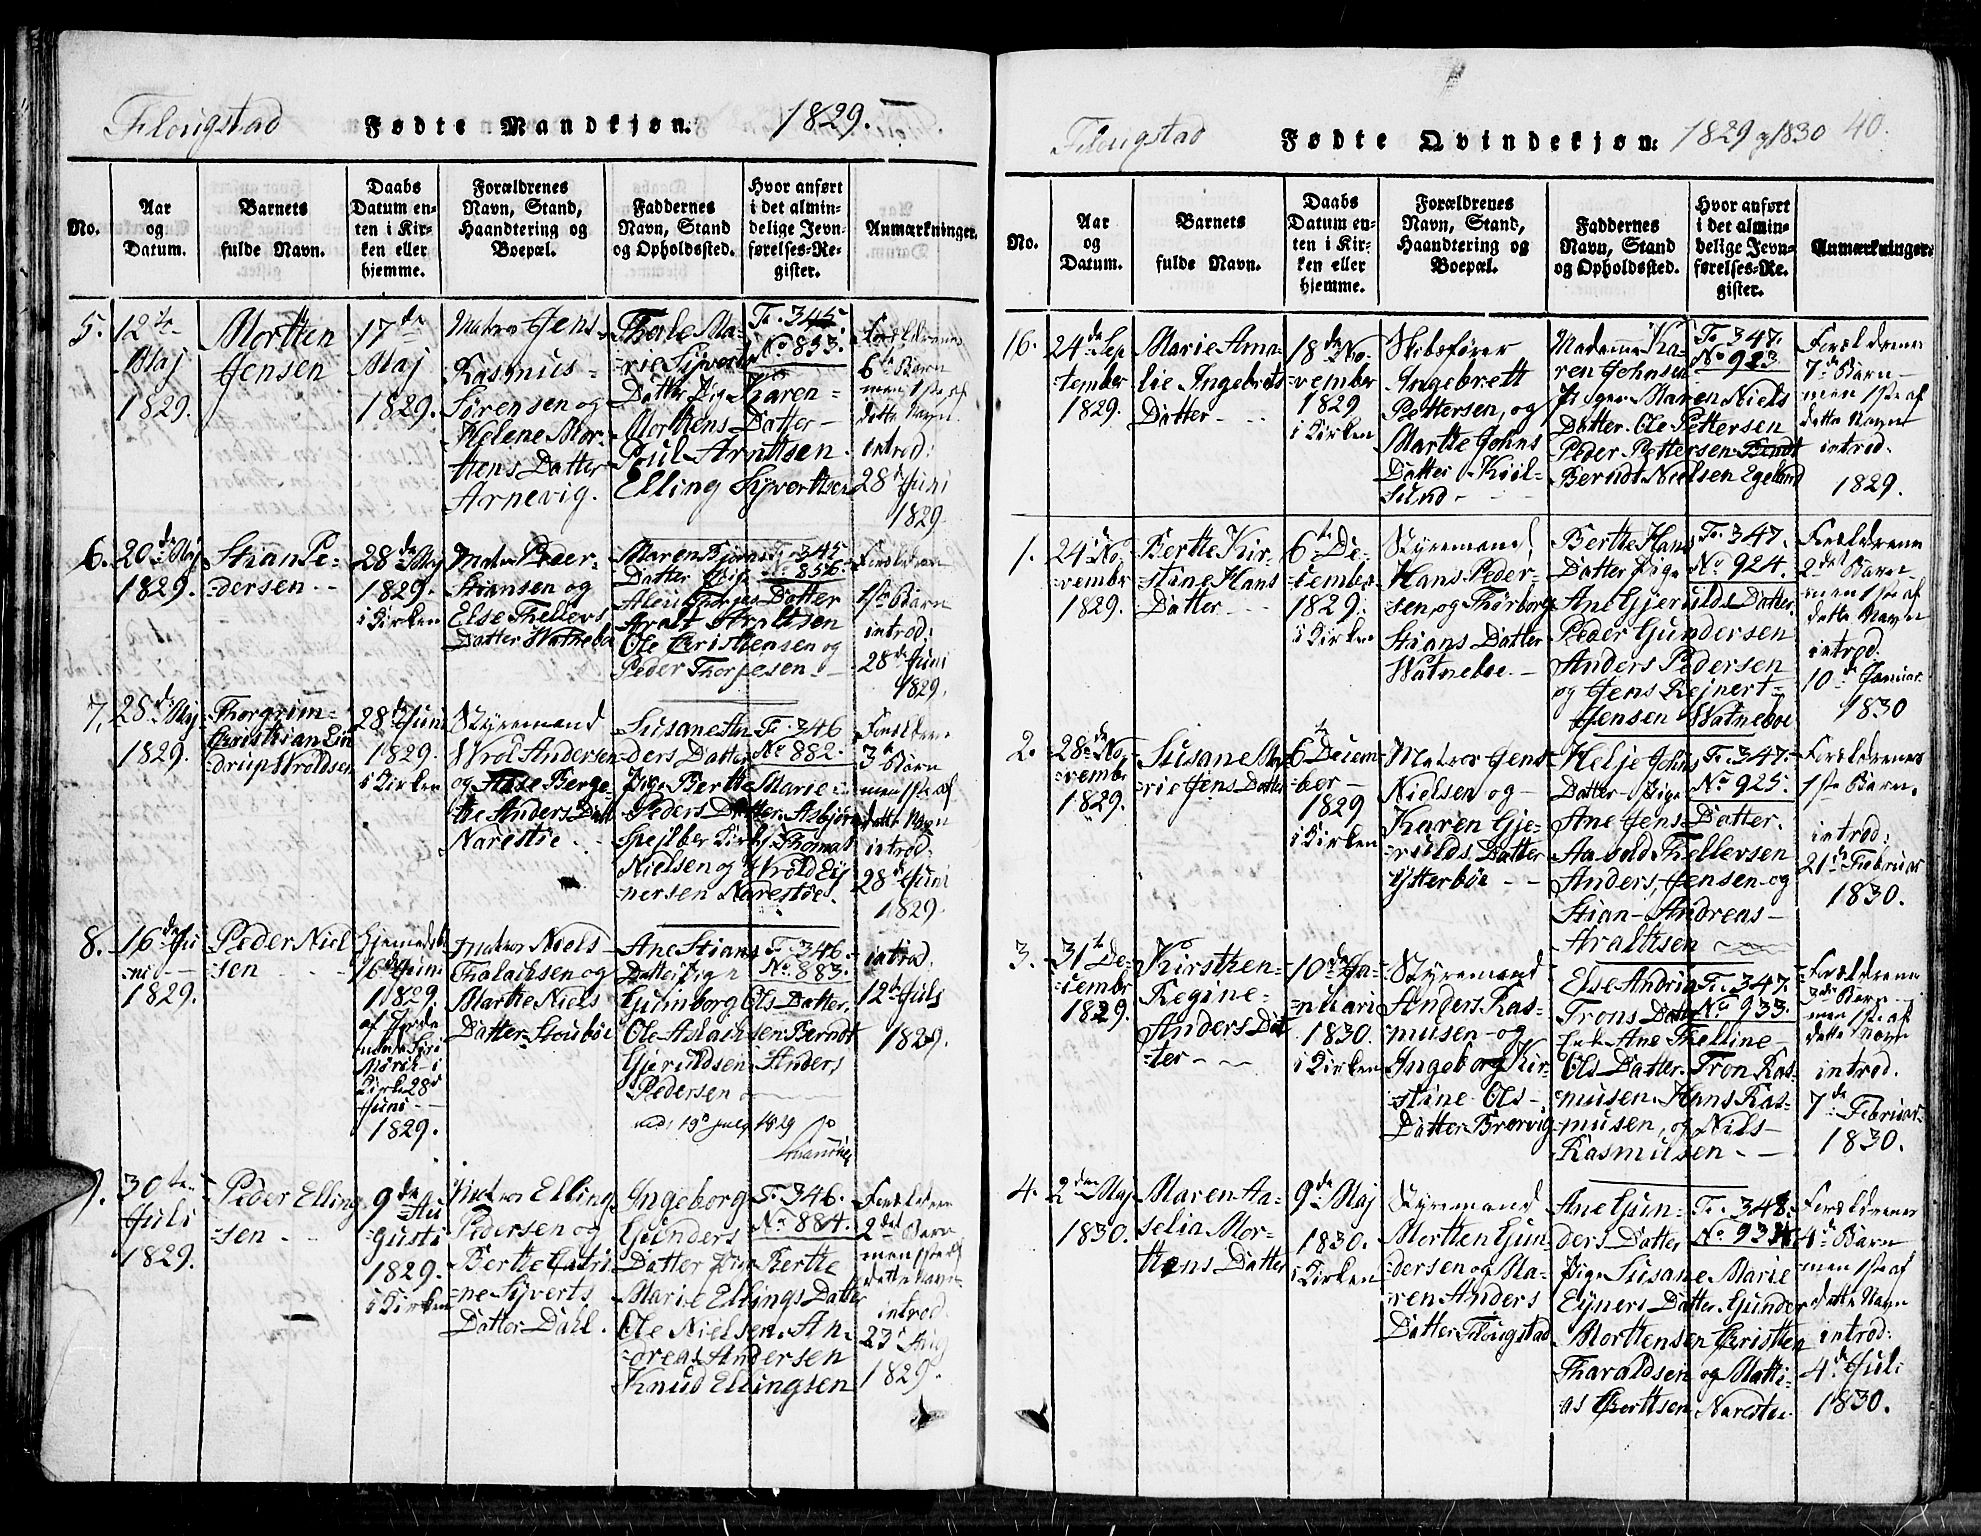 Flougstad
Fødte Mandkjøn.
1829.
No.
Aar
og
Datum.
Barnets
fulde Navn.
Daabs
Datum en-
ten i Kir-
ken eller
hjemme.
Forældrenes
Navn, Stand,
Haandtering og
Boepæl.
Faddernes
Navn, Stand
og Opholdssted.
Hvor anført
i det almin-
delige Jevn-
førelses-Re-
gister.
Anmærkninger.
5.
12te
Maj
1829.
Mortten
Jensen
17de
Maj
1829.
Matros Jens
Rasmus
Sørensen og
Helene Mor-
tens Datter
Arnevig.
Therle Ma-
rie Syverts
Datter Pige Karen
Morttens Datter
Poul Arnttsen
Elling Syverttsen
Fr. 345.
No. 853.
Forældrenes
6te Barn
men 1ste af
dette Navn
introd:
28de Juni
1829.
6.
20de Maj
1829.
Stian Pe-
dersen
28de Maj
1829.
i Kirken
Matros Peder
Stiansen og
Else Thellevs
Datter Watnebøe
Maren Bjørns
Datter Pige
Datter
Aralt Araldsen
Ole Christensen og
Peder Thorjesen
Fr. 345
No. 856.
Forældrenes
1ste Barn
introd:
28de Juni
1829.
7.
28de Maj
1829.
Thorgrim
Christian Lin
drup Wroldsen
28de Juni
1829.
i Kirken
Styrmand
Wrol Andersen
og Berge-
the Anders Datt
Narestøe
Susane An-
ders Datter
Pige Berthe Marie
Peders Datter. Asbjørn
Spejlber Kirk Thomas
Nielsen og Wrold Ey-
nersen Narestøe.
Fr. 346
No. 882.
Forældrenes
3die Barn
men 1ste af
dette Navn
introd:
28de Juni
1829.
8.
16de Ju-
ni
1829.
Peder Niel-
sen
Hjemedøbt
16de Juni
1829.
af
i
Kirke 28de
Juni
1829.
Matros Niels
og
Marthe Niels
Datter Stoubøe
Ane Stians
Datter Pige
Gjunborg Ols Datter.
Ole Aslachsen Berndt
Gjeruldsen Anders
Pedersen
Fr. 346.
No. 883.
introd.
12te Juli
1829.
9.
30te
Juli
1829.
Peder Elling-
sen
9de Au-
gusti
1829.
i Kirken
Matros Elling
Pedersen og
Berthe Catri-
ne Syverts
Datter Dahl.
Ingeborg
Gjunders
Datter Pige Berthe
Marie Ellings Datter
Ole Nielsen. An-
dreas Andersen
Knud Ellingsen
Fr. 346.
No. 884.
Forældrenes
2det Barn
men 1ste af
dette Navn
introd.
23de Aug
1829.
Flougstad
Fødte Qvindekjøn.
1829 og 1830
40.
No.
Aar
og
Datum.
Barnets
fulde Navn.
Daabs
Datum en-
ten i Kir-
ken eller
hjemme.
Forældrenes
Navn, Stand,
Haandtering og
Boepæl.
Faddernes
Navn, Stand
og Opholdssted.
Hvor anført
i det almin-
delige Jevn-
førelses-Re-
gister.
Anmærkninger.
16.
24de Sep
tember
1829.
Marie Ama-
lie Ingebrets
Datter
18de No-
vember
1829
i Kirken
Skibsfører
Ingebrett
Pettersen, og
Marthe Johns
Datter Kiil-
sund
Madame Ka-
ren Johnsen
Pigen Maren Niels
Datter. Ole Pettersen
Peder Pettersen
Berndt Nielsen Egeland
Fr. 347.
No. 923
Forældrenes
7de Barn
men 1ste af
dette Navn
introd.
1829.
1.
24de No-
vembr
1829.
Berthe Kir-
stine Hans
Datter
6te De-
cember
1829.
i Kirken
Styrmand
Hans Peder-
sen, og Thorborg
Stians Datter
Watnebøe
Berthe Hans
Datter Pige
Ane Gjerulds Datter.
Peder Gundersen
Anders Pedersen
og Jens Rejnert
Jensen Watnebøe
Fr. 347.
No. 924.
Forældrenes
2det Barn
men 1ste af
dette Navn
introd.
10de Januar
1830
2.
28de No-
vembr
1829.
Susane Ma-
rie Jens Datter
6te Decem-
ber
1829
i Kirken
Matros Jens
Nielsen og
Karen Gje-
rulds Datter
Ytterbøe
Helje Johns
Datter Pige
Ane Jens Datter.
Aasuld Thellefsen
Anders Jensen og
Stian Andreas
Araltsen
Fr. 347.
No. 925.
Forældrenes
1ste Barn.
introd:
21de Februar
1830.
3.
31te De-
cembr
1829.
Kirsthen
Regine
Anders Dat-
ter
10de Ja-
nuari
1830.
i Kirken
Styrmand
Anders Ras-
musen og
Ingeborg Kir-
stine Ols
Datter Brovig
Else Andrea
Trons Datter
Enke Ane Thelline
Ols Datter. Tron Ras-
musen. Hans Ras-
musen, og Niels
Rasmusen
Fr. 347.
No. 933.
Forældrenes
3die Barn
men 1ste af
dette Navn
introd.
7de Februar
1830.
4.
2den Maj
1830.
Maren Aa-
selia Mor-
thens Datter
9de Maj
1830.
i Kirken
Styrmand
Mortten Gun-
dersen og Ma-
ren Anders
Datter Flougstad
Ane Gun-
ders Datter
Pige Susane Marie
Eyners Datter. Gunder
Morttensen Christen
Tharaldsen og Matti-
as Gierttsen Narestøe
Fr. 348.
Forældrenes
4de Barn
men 1ste af
dette Navn
introd:
4de Juli
1830.